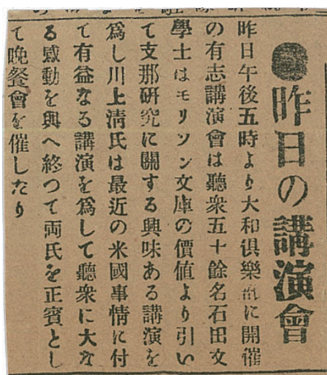 ●昨日の講演會
昨日午後五時より大和倶樂部に開催
の有志講演會は聽衆五十餘名石田文
學士はモリソン文庫の價値より引い
て支那研究に關する興味ある講演を
爲し川上淸氏は最近の米國事情に付
て有益なる講演を爲して聽衆に大な
る感動を與へ終つて両氏を正賓とし
て晩餐會を催したり